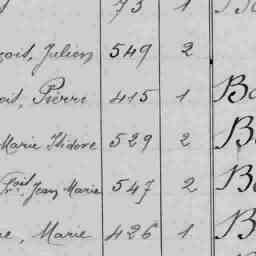 73 1
çois, Julien 549 2
çois, Pierre 415 1 Bo
Marie Isidore 529 2 B
Fçois Jean Marie 547 2 Bo
e, Marie 426 1 B